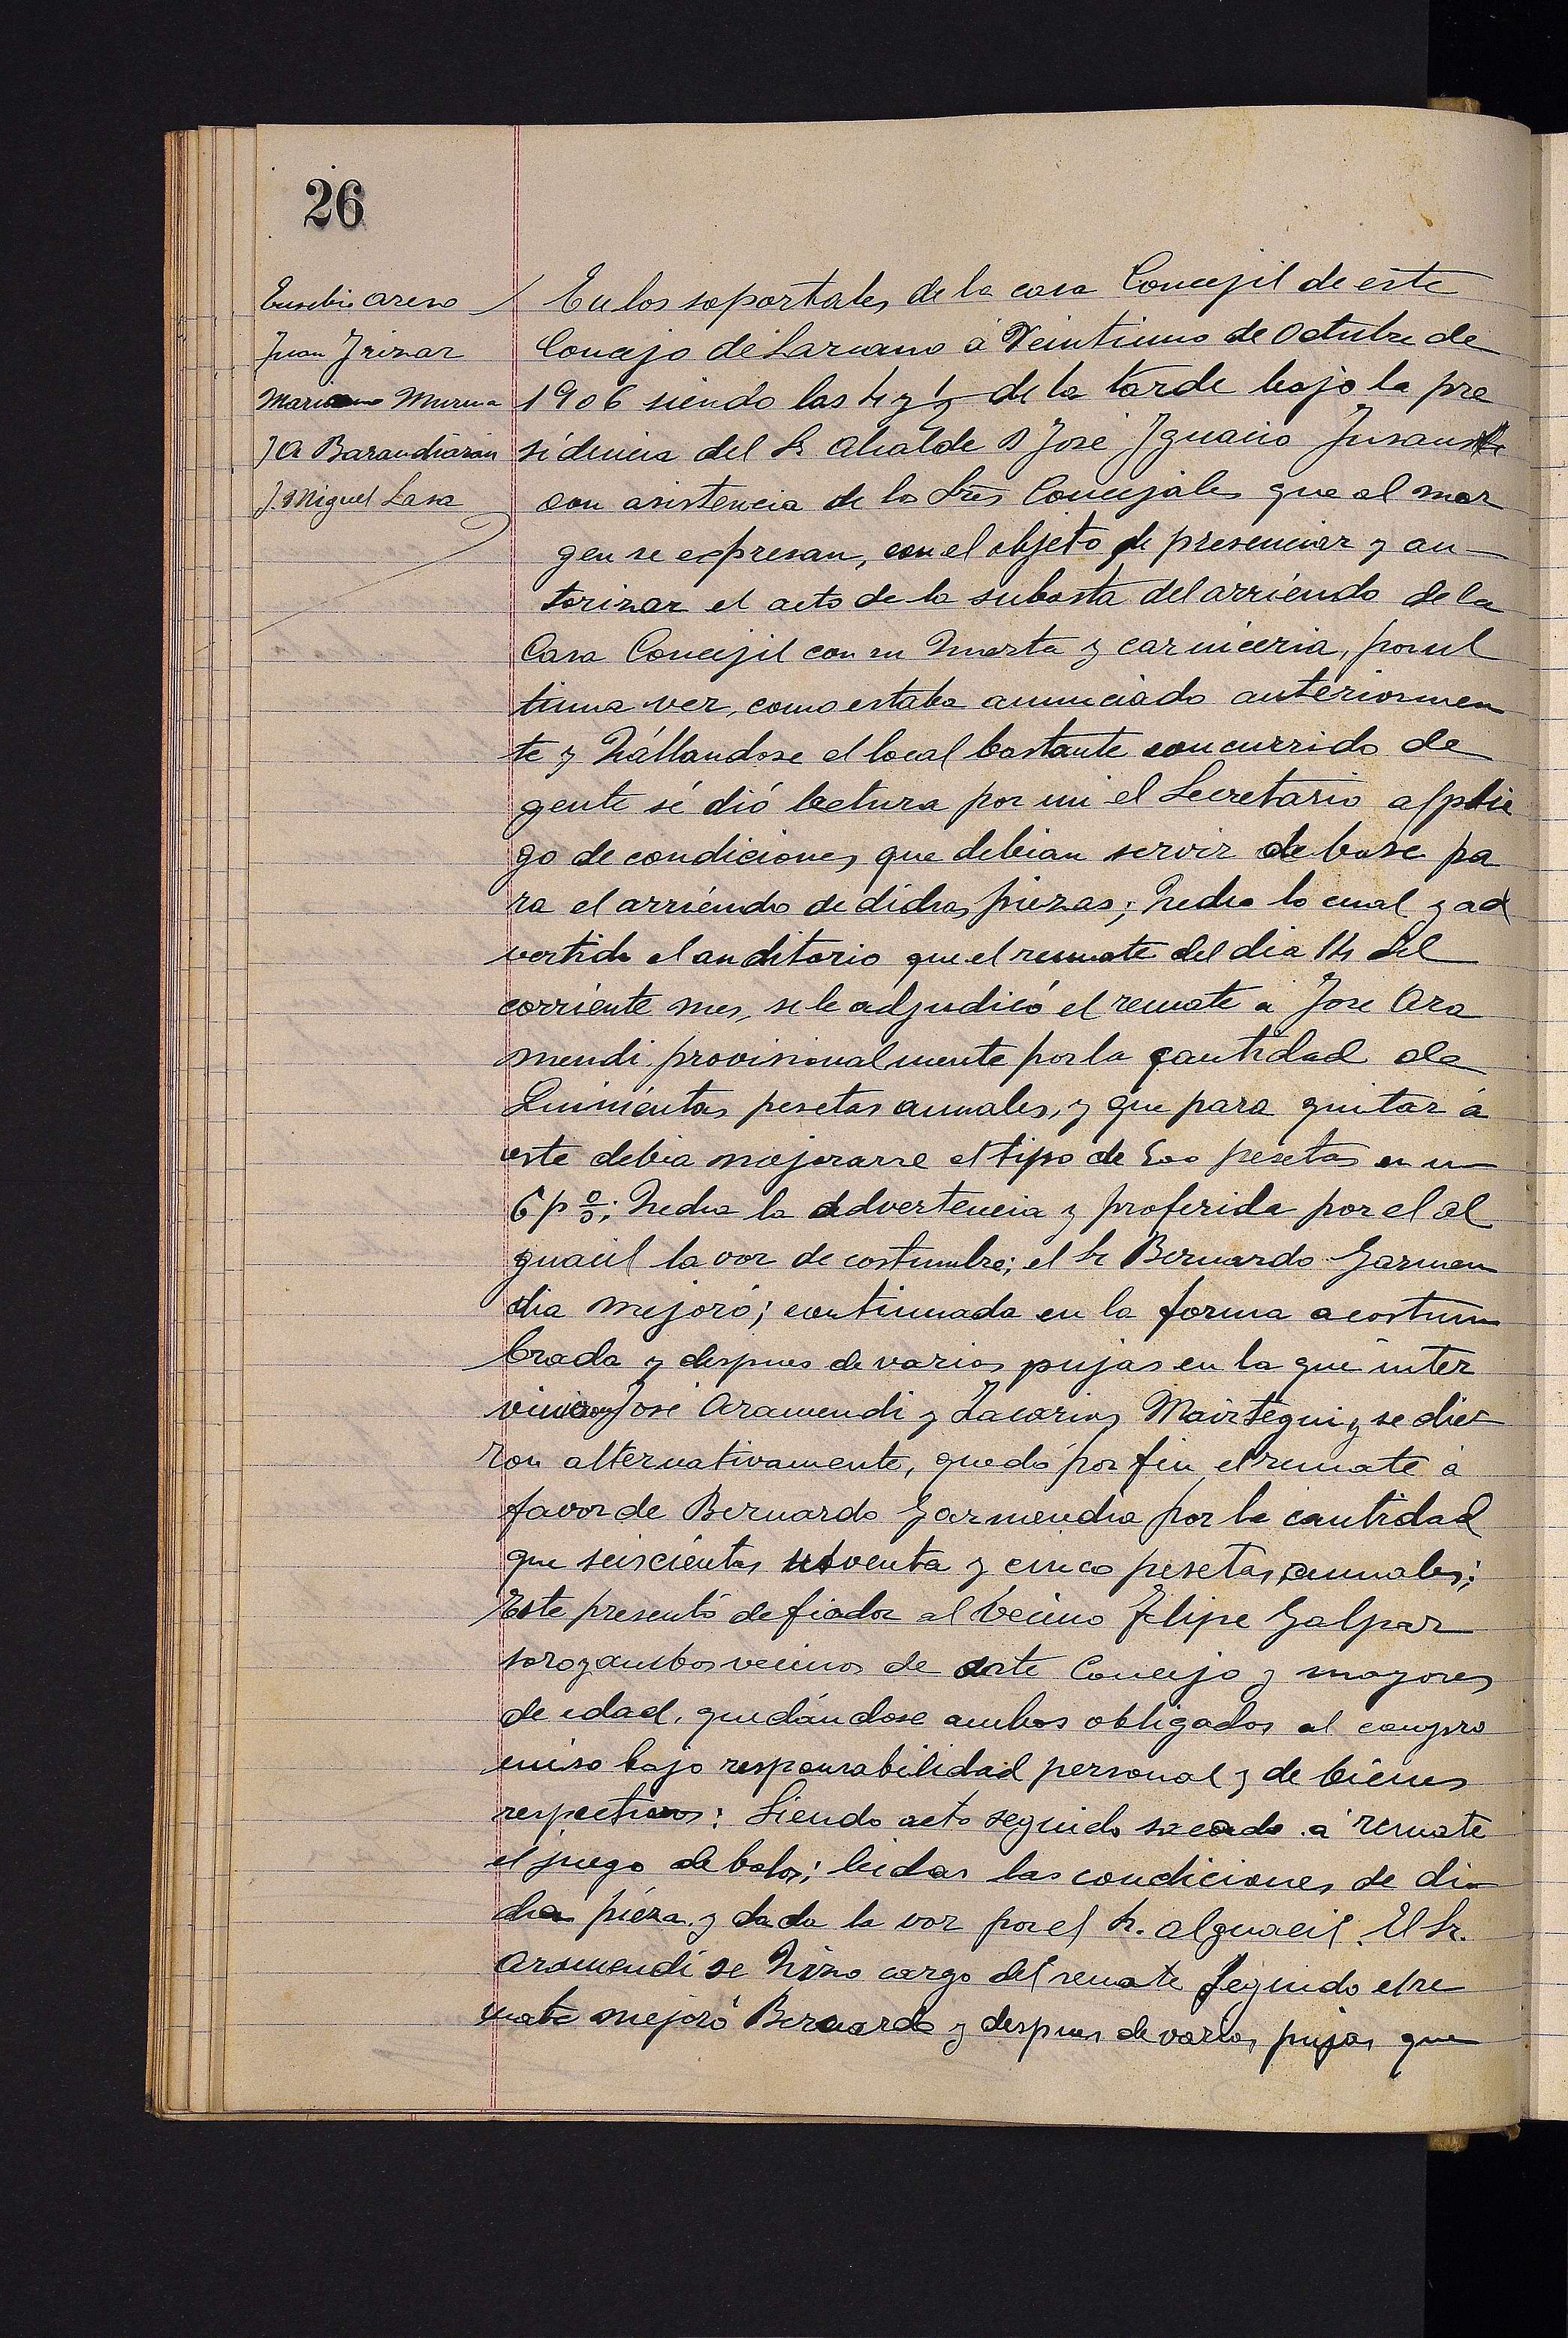 26
Eusebio Areso
Juan Irizar
Mariano Murua
J A Barandiaran
J. Miguel Lasa
En los soportales de la casa Concejil de este
Concejo de Lazcano á Veintiuno de Octubre de
1906 siendo las 4 y ½ de la tarde bajo la pre
sidencia del Sr Alcalde D José Ignacio
con asistencia de los Sres Concejales que al mar
gen se expresan, con el objeto de presenciar y au-
torizar el acto de la subasta del arriendo de la
Casa Concejil con su Huerta y carniceria, por ul
tima vez, como estaba anunciado anteriormen
te y hállandose el local bastante concurrido de
gente sé dió lectura por mi el Secretario al plie
go de condiciones que debian servir de base pa
ra el arriendo de dichas piezas; hecho lo cual y ad
vertido el auditorio que el remate del dia 14 del
corriente mes, se le adjudicó el remate a Jose Ara
mendi provisionalmente por la cantidad de
Quinientas pesetas anuales, y que para quitar á
este debia mejorarse el tipo de 500 pesetas en un
6 p %; hecha la advertencia y proferida por el al
guacil la voz de costumbre; el Sr Bernardo Garmen
dia mejoró; continuada en la forma acostum
brada y despues de varias pujas en la que inter
vinieron José Aramendi y Zacarias Mairtegui y se die
ron alternativamente, quedó por fin el remate á
favor de Bernardo Garmendia por la cantidad
que seiscientas noventa y cinco pesetas anuales;
Este presentó de fiador al vecino Felipe Galpar
soro y ambos vecinos de este Concejo y mayores
de edad, quedándose ambos obligados al compro
miso bajo responsabilidad personal y de bienes
respectivos: Siendo acto seguido sacado á remate
el juego de bolos; leidas las condiciones de di
cha pieza y dada la voz por el Sr. alguacil. El Sr.
Aramendi se hizo cargo del remate seguido el re
mate mejoró Bernardo y despues de varias pujas que